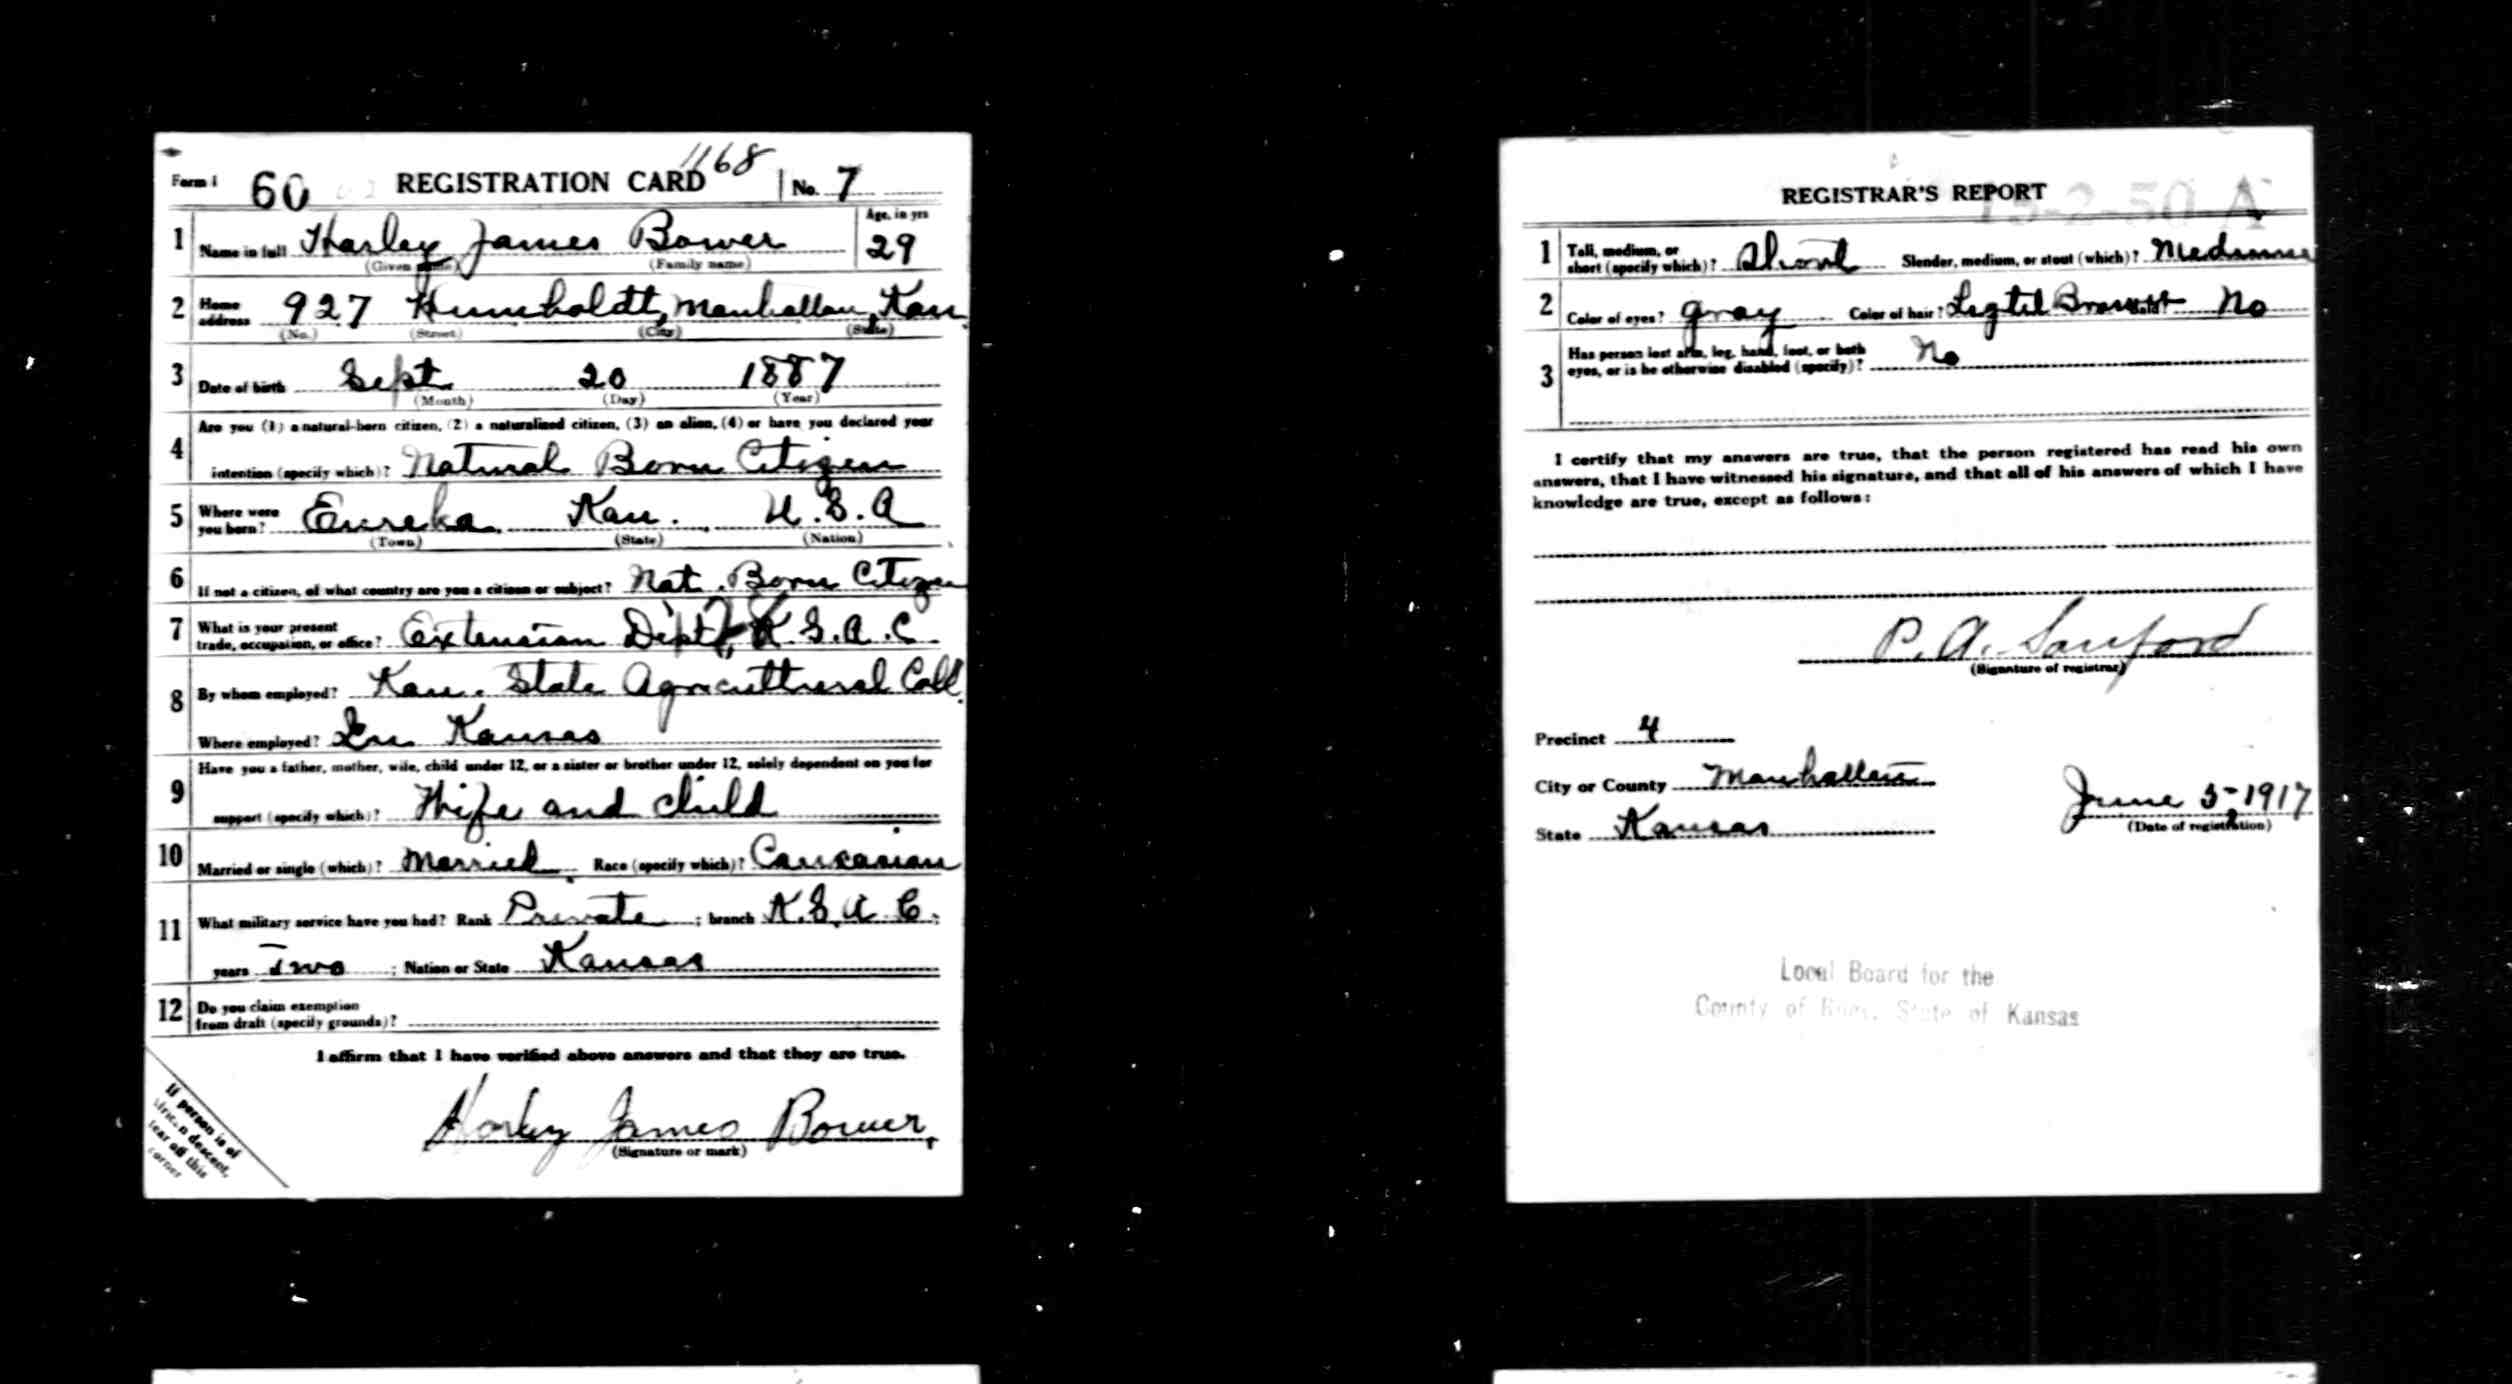 1168
Form 1 60 REGISTRATION CARD No. 7
1 Name in full Harley James Bower Age, in yrs 29
(Given name) (Family name)
2 Home address 927 Humboldt, Manhattan, Kan
(No.) (Street) (City) (State)
3 Date of birth Sept 20 1887
(Month) (Day) (Year)
4 Are you (1) a natural-born citizen, (2) a naturalized citizen, (3) an alien, (4) or have you declared your
intention (specify which)? Natural Born Citizen
5 Where were you born? Eureka Kan. U.S.A
(Town) (State) (Nation)
6 If not a citizen, of what country are you a citizen or subject? Nat. Born Citizen
7 What is your present
trade, occupation, or office? Extension Dept, K.S.A.C
8 By whom employed? Kan. State Agricultural Coll.
Where employed? In Kansas
9 Have you a father, mother, wife, child under 12, or a sister or brother under 12, solely dependent on you for
support (specify which)? Wife and child
10 Married or single (which)? Married Race (specify which)? Caucasian
11 What military service have you had? Rank Private ; branch K.S.A.C. ;
years Two ; Nation or State Kansas
12 Do you claim exemption
from draft (specify grounds)?
I affirm that I have verified above answers and that they are true.
Harley James Bower
(Signature or mark)
If person is of
African descent,
tear off this
corner
REGISTRAR'S REPORT
15-2-50 A
1 Tall, medium, or
short (specify which)? Short Slender, medium, or stout (which)? Medium
2 Color of eyes? Gray Color of hair? Light Brown Bald? No
3 Has person lost arm, leg, hand, foot, or both
eyes, or is he otherwise disabled (specify)? No
I certify that my answers are true, that the person registered has read his own
answers, that I have witnessed his signature, and that all of his answers of which I have
knowledge are true, except as follows:
P. A. Sanford
(Signature of registrar)
Precinct 4
City or County Manhattan
State Kansas
June 5, 1917
(Date of registration)
Local Board for the
County of Riley, State of Kansas